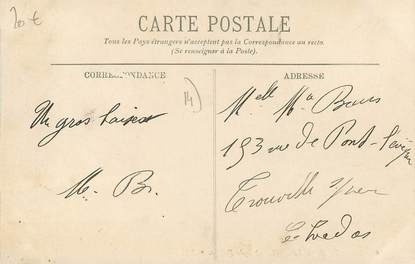 20 €
CARTE POSTALE
Tous les Pays étrangers n'acceptent pas la Correspondance au recto.
(Se renseigner à la Poste).
CORRESPONDANCE
ADRESSE
14
Un gros
M. B.
Melle
193 rue de Pont-l'évêque
Trouville